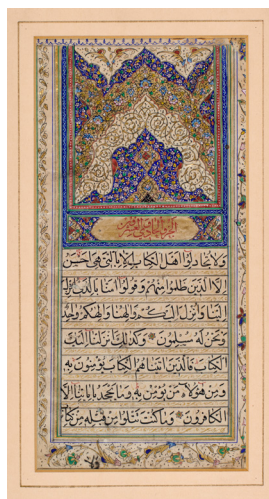 وَلَا تُجَادِلُوا اَهْلَ الْكِتَابِ اِلَّا بِالَّتِي هِيَ اَحْسَنُ
اِلَّا الَّذِينَ ظَلَمُوا مِنْهُمْ وَقُولُوا اٰمَنَّا بِالَّذِي اُنْزِلَ
اِلَيْنَا وَاُنْزِلَ اِلَيْكُمْ وَاِلٰهُنَا وَاِلٰهُكُمْ وَاحِدٌ
وَنَحْنُ لَهُ مُسْلِمُونَ وَكَذٰلِكَ اَنْزَلْنَا اِلَيْكَ
الْكِتَابَ فَالَّذِينَ اٰتَيْنَاهُمُ الْكِتَابَ يُؤْمِنُونَ بِهِ
وَمِنْ هٰؤُلَاءِ مَنْ يُؤْمِنُ بِهِ وَمَا يَجْحَدُ بِاٰيَاتِنَا اِلَّا
الْكَافِرُونَ وَمَا كُنْتَ تَتْلُوا مِنْ قَبْلِهِ مِنْ كِتَابٍ